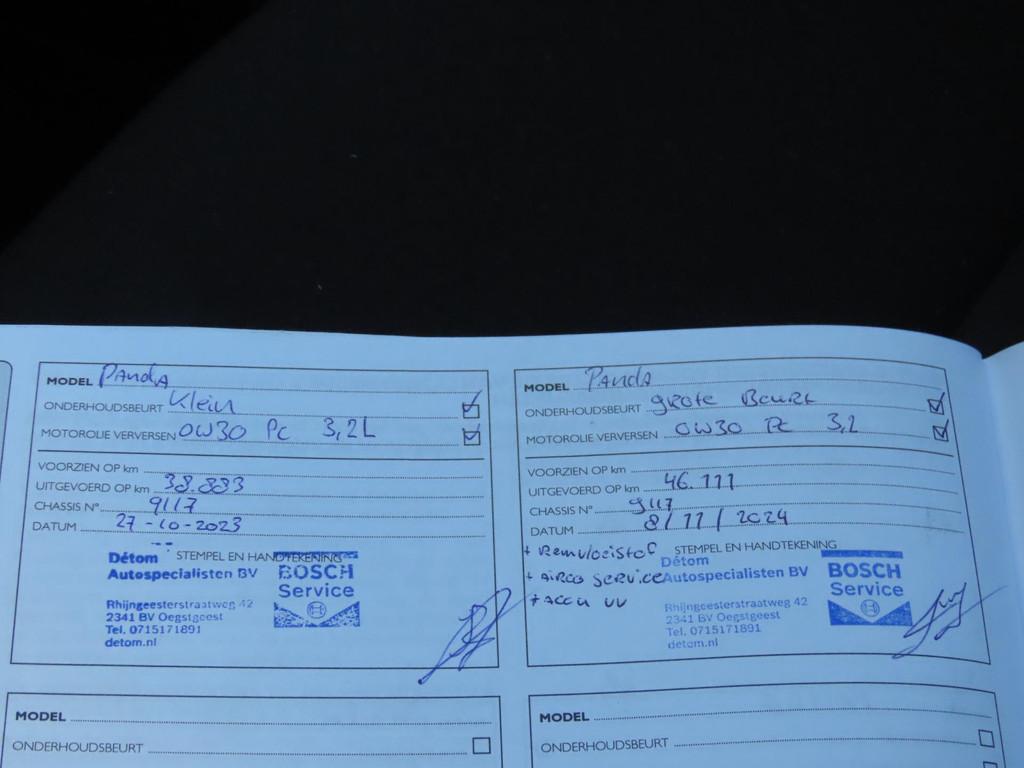 MODEL Panda
ONDERHOUDSBEURT Klein
MOTOROLIE VERVERSEN 0W30 PC 3,2L
VOORZIEN OP km
UITGEVOERD OP km 38.883
CHASSIS N° 9117
DATUM 27-10-2023
STEMPEL EN HANDTEKENING
Détom
Autospecialisten BV
Rhijngeesterstraatweg 42
2341 BV Oegstgeest
Tel. 0715171891
detom.nl
BOSCH
Service
MODEL Panda
ONDERHOUDSBEURT grote Beurt
MOTOROLIE VERVERSEN 0W30 PC 3,2
VOORZIEN OP km
UITGEVOERD OP km 46.111
CHASSIS N° 9117
DATUM 8/11/2024
STEMPEL EN HANDTEKENING
+ Remvloeistof
+ Airco service
+ Accu VV
Détom
Autospecialisten BV
Rhijngeesterstraatweg 42
2341 BV Oegstgeest
Tel. 0715171891
detom.nl
BOSCH
Service
MODEL
ONDERHOUDSBEURT
MODEL
ONDERHOUDSBEURT